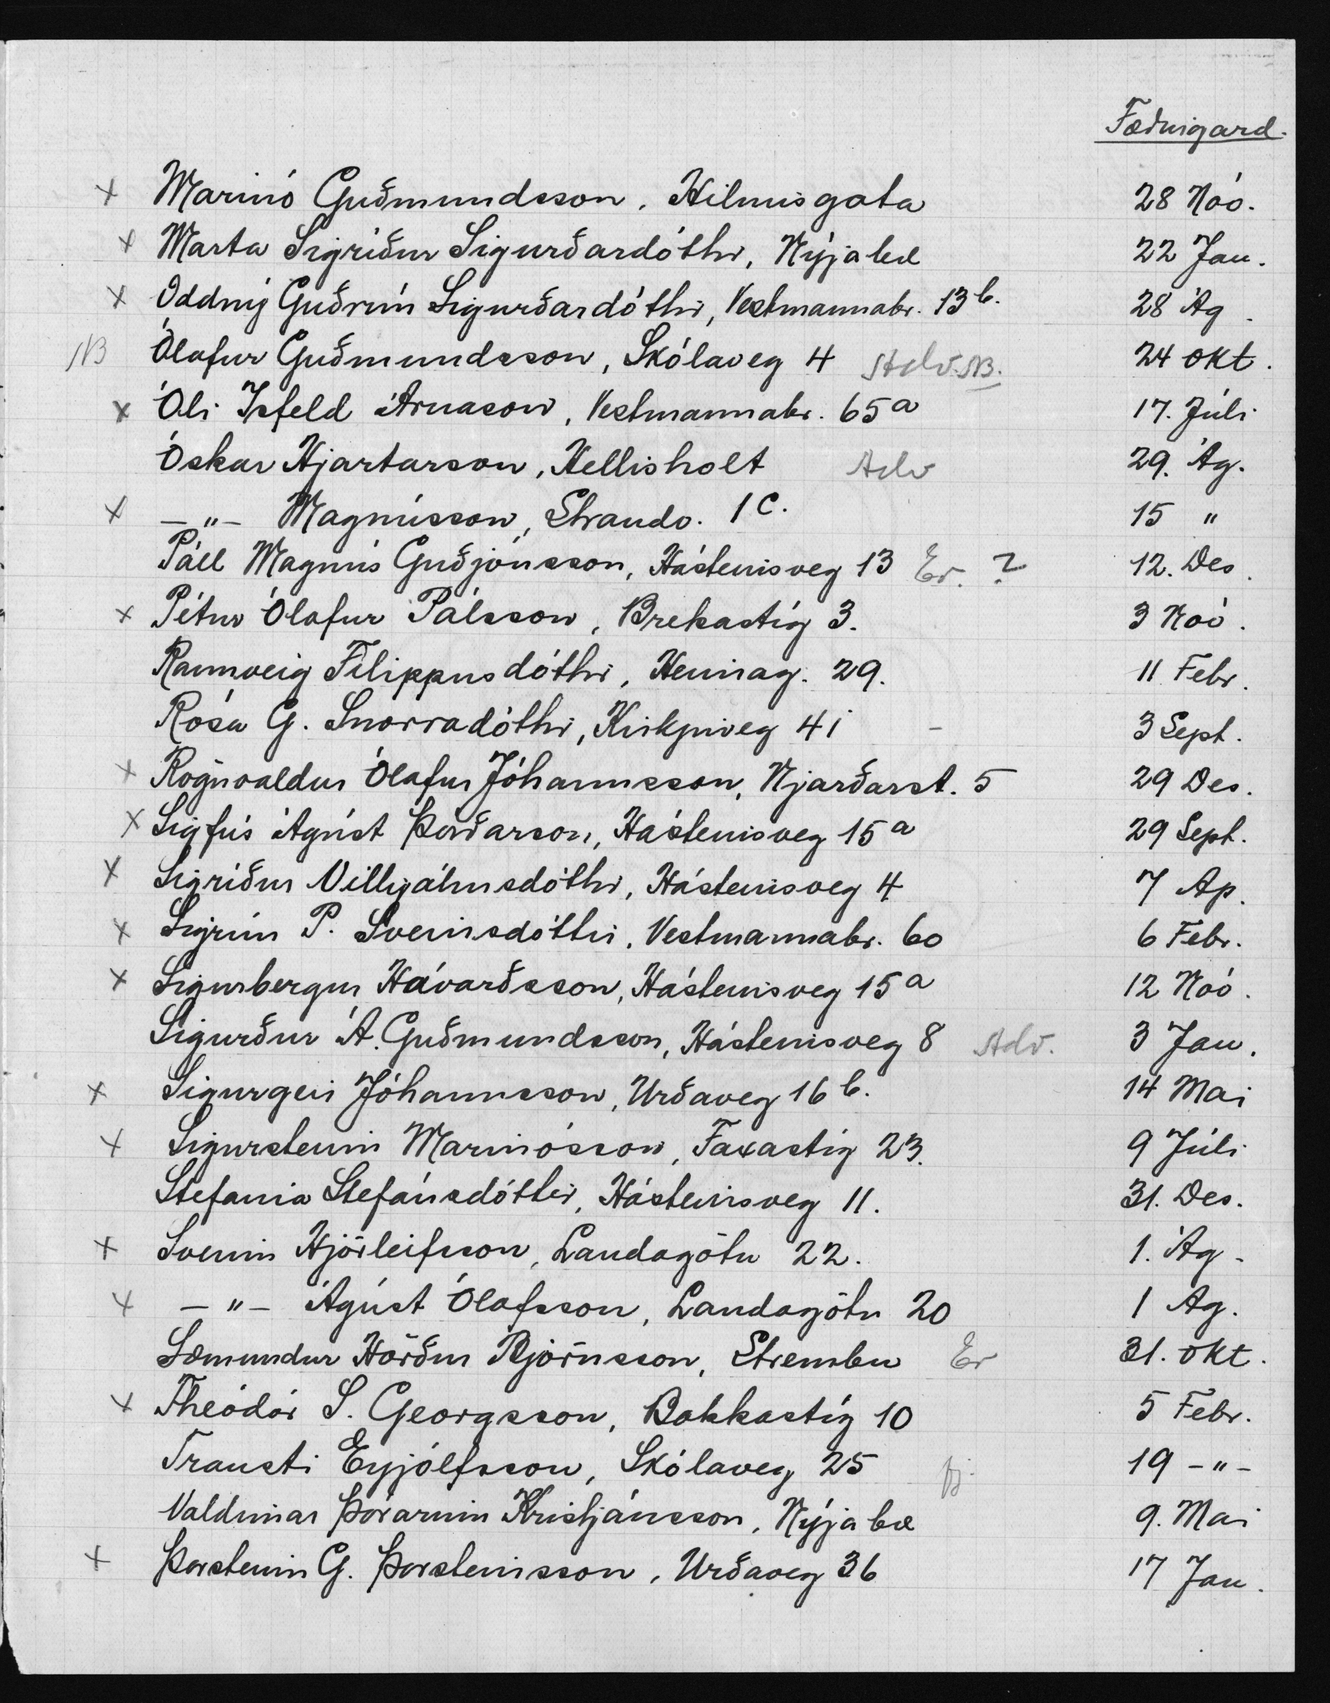 Fæðingard.
x Marinó Guðmundsson, Hilmisgata 28 Nóv.
x Marta Sigríður Sigurðardóttir, Nýjabæ 22 Jan.
x Oddný Guðrún Sigurðardóttir, Vestmannabr. 13 b. 28 Ág.
NB Ólafur Guðmundsson, Skólaveg 4 Adv. NB. 24 okt.
x Óli Ísfeld Árnason, Vestmannabr. 65 a 17. Júli
Óskar Hjartarson, Hellisholt Adv 29. Ág.
x – " – Magnússon, Strandv. 1 C. 15 "
Páll Magnús Guðjónsson, Hásteinsveg 13 Er. ? 12. Des.
x Pétur Ólafur Pálsson, Brekastíg 3. 3 Nóv.
Rannveig Filippusdóttir, Heimag. 29. 11 Febr.
Rósa G. Snorradóttir, Kirkjuveg 41 – 3 Sept.
x Rögnvaldur Ólafur Jóhannsson, Njarðarst. 5 29 Des.
x Sigfús Ágúst Þórðarson, Hásteinsveg 15 a 29 Sept.
x Sigríður Vilhjálmsdóttir, Hásteinsveg 4 7 Ap.
x Sigrún P. Sveinsdóttir, Vestmannabr. 60 6 Febr.
x Sigurbergur Hávarðsson, Hásteinsveg 15 a 12 Nóv.
Sigurður Á. Guðmundsson, Hásteinsveg 8 Adv. 3 Jan.
x Sigurgeir Jóhannsson, Urðaveg 16 b. 14 Mai
x Sigursteinn Marinósson, Faxastíg 23. 9 Júli
Stefania Stefánsdóttir, Hásteinsveg 11. 31. Des.
x Sveinn Hjörleifsson, Landagötu 22. 1. Ág.
x – " – Ágúst Ólafsson, Landagötu 20 1 Ag.
Sæmundur Hörður Björnsson, Strembu Er 31. okt.
x Theódór S. Georgsson, Bakkastíg 10 5 Febr.
Trausti Eyjólfsson, Skólaveg 25 fj. 19 – " –
Valdimar Þórarinn Kristjánsson, Nýjabæ 9. Mai
x Þorsteinn G. Þorsteinsson, Urðaveg 36 17 Jan.